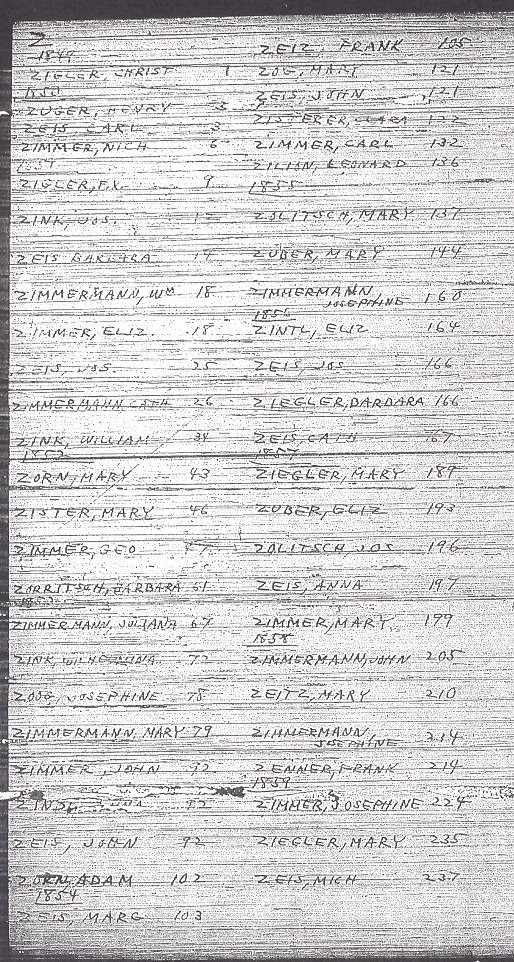 Z
1849
ZIEGLER, CHRIST 1
1850
ZUGER, HENRY 3
ZEIS, CARL 3
ZIMMER, NICH 6
ZIGLER, F.X. 9
ZINK, JOS. 12
ZEIS BARBARA 17
ZIMMERMANN, WM 18
ZIMMER, ELIZ 18
ZEIS, JOS. 25
ZIMMERMANN, CATH 26
ZINK, WILLIAM 34
1852
ZORN, MARY 43
ZISTER, MARY 46
ZIMMER, GEO 47
ZORRITSCH, BARBARA 61
ZIMMERMANN, JULIANA 67
ZINK, WILHELMINA 72
ZOOG, JOSEPHINE 78
ZIMMERMANN, MARY 79
ZIMMER, JOHN 92
ZEIS, JOHN 92
ZORN, ADAM 102
1854
ZEIS, MARG 103
ZEIZ, FRANK 105
ZOG, MARY 121
ZEIS, JOHN 121
ZISTERER, CLARA 122
ZIMMER, CARL 132
ZILIAN, LEONARD 136
1855
ZOLITSCH, MARY 137
ZUBER, MARY 144
ZIMMERMANN,
JOSEPHINE 160
1856
ZINTL, ELIZ 164
ZEIS, JOS 166
ZIEGLER, BARBARA 166
ZEIS, CATH 167
1857
ZIEGLER, MARY 189
ZUBER, ELIZ 193
ZOLITSCH JOS 196
ZEIS, ANNA 197
ZIMMER, MARY 199
1858
ZIMMERMANN, JOHN 205
ZEITZ, MARY 210
ZIMMERMANN,
JOSEPHINE 214
ZENNER, FRANK 214
1859
ZIMMER, JOSEPHINE 224
ZIEGLER, MARY 235
ZEIS, MICH 237